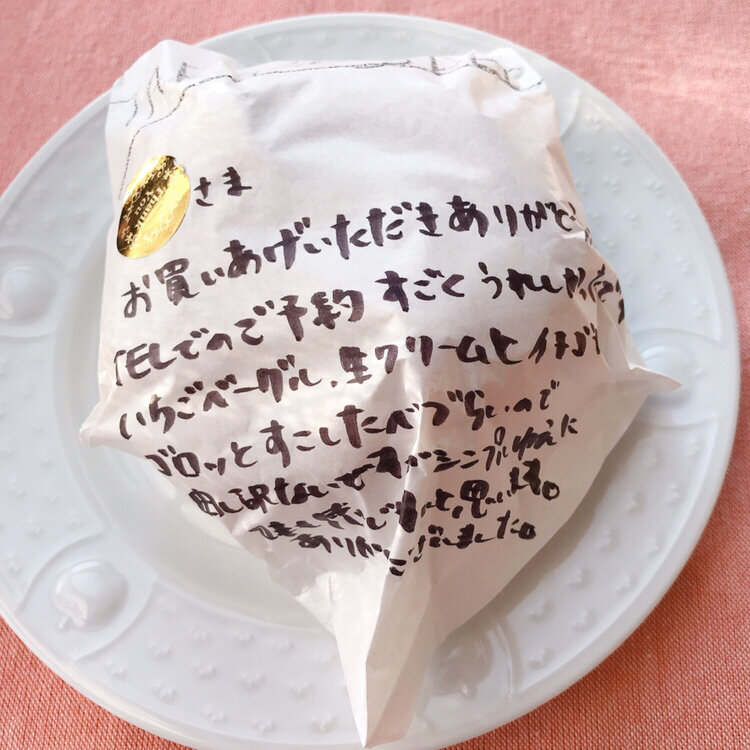 さま
お買いあげいただきありがとう
TELでのご予約 すごくうれしかった
いちごベーグル、生クリームとイチゴを
ゴロッとすこしたべづらいので
申し訳ないですがシンプルゆえに
と思います。
ありがとうございました。